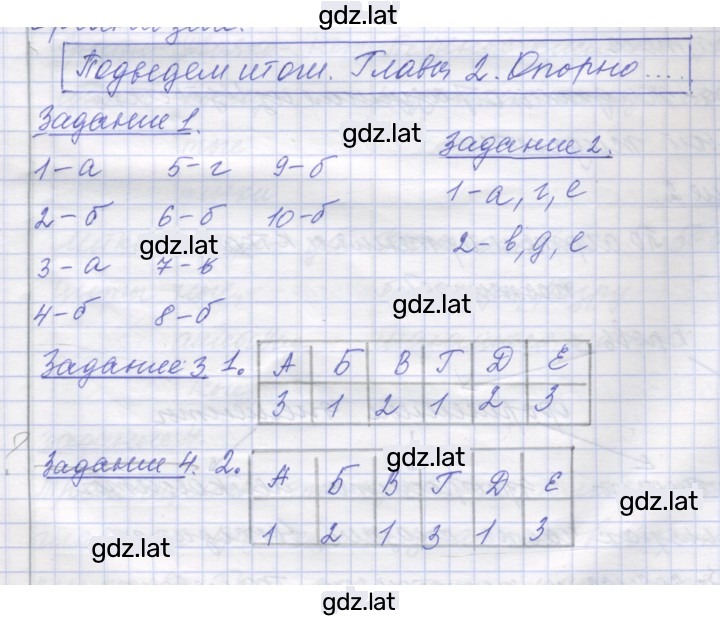 gdz.lat
Подведем итоги. Глава 2. Опорно....
Задание 1.
gdz.lat
1-а 5-г 9-б
2-б 6-б 10-б
gdz.lat
3-а 7-в
4-б 8-б
Задание 2.
1-а, г, е
2-в, д, е
gdz.lat
Задание 3 1.
А Б В Г Д Е
3 1 2 1 2 3
Задание 4. 2.
gdz.lat
А Б В Г Д Е
1 2 1 3 1 3
gdz.lat
gdz.lat
gdz.lat